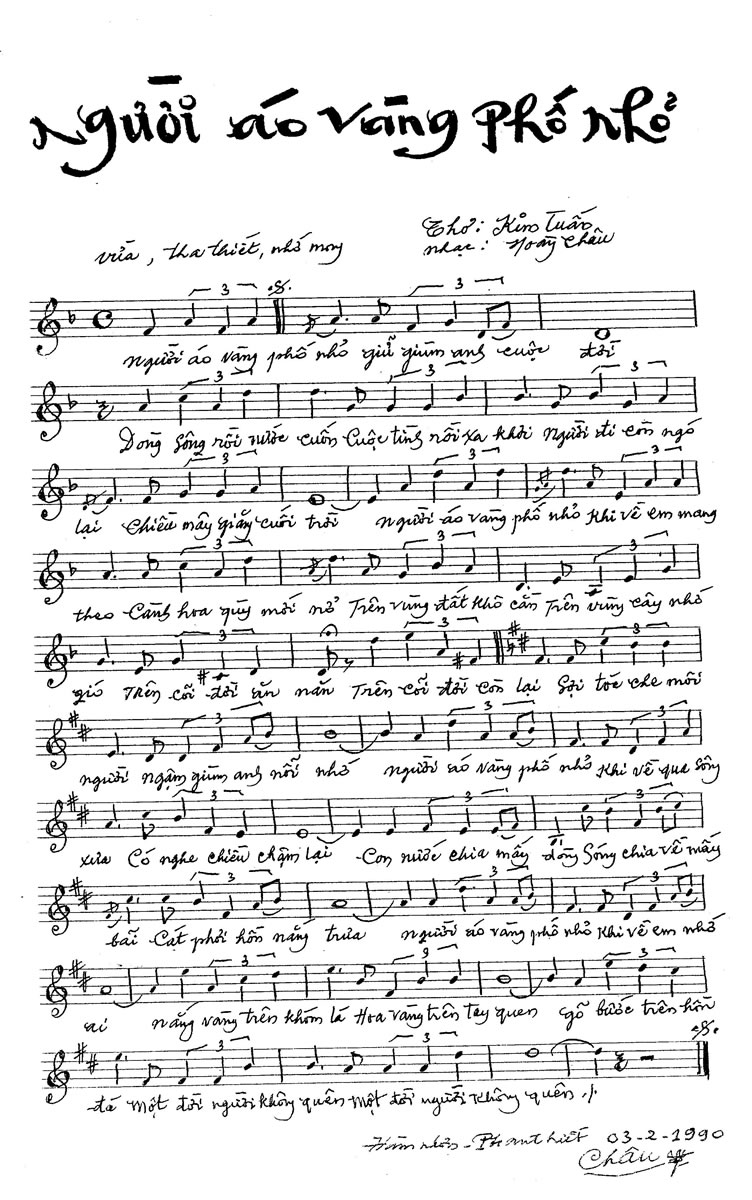 Người áo vàng phố nhỏ
vừa, tha thiết, nhớ mong
Thơ: Kim Tuấn
Nhạc: Hoàng Châu
3 3
Người áo vàng phố nhỏ giữ giùm anh cuộc đời
3 3 3
Dòng sông rồi nước cuốn Cuộc tình rồi xa khơi Người đi còn ngó
3 3 3
lại Chiều mây giăng cuối trời Người áo vàng phố nhỏ Khi về em mang
3 3 3
theo Cành hoa quỳ mới nở Trên vùng đất khô cằn Trên vùng cây nhớ
3 3 3
gió Trên cõi đời ăn năn Trên cõi đời còn lại Sợi tóc che môi
3 3 3
người Ngậm giùm anh nỗi nhớ Người áo vàng phố nhỏ Khi về qua sông
3 3 3
xưa Có nghe chiều chậm lại Con nước chia mấy dòng Sóng chia về mấy
3 3 3
bãi Cát phơi hồn nắng trưa Người áo vàng phố nhỏ Khi về em nhớ
3 3 3
ai Nắng vàng trên khóm lá Hoa vàng trên tay quen gõ bước trên hồn
3 3
đá Một đời người không quên Một đời người không quên ./.
Hàm - Phan Thiết 03-2-1990
Châu